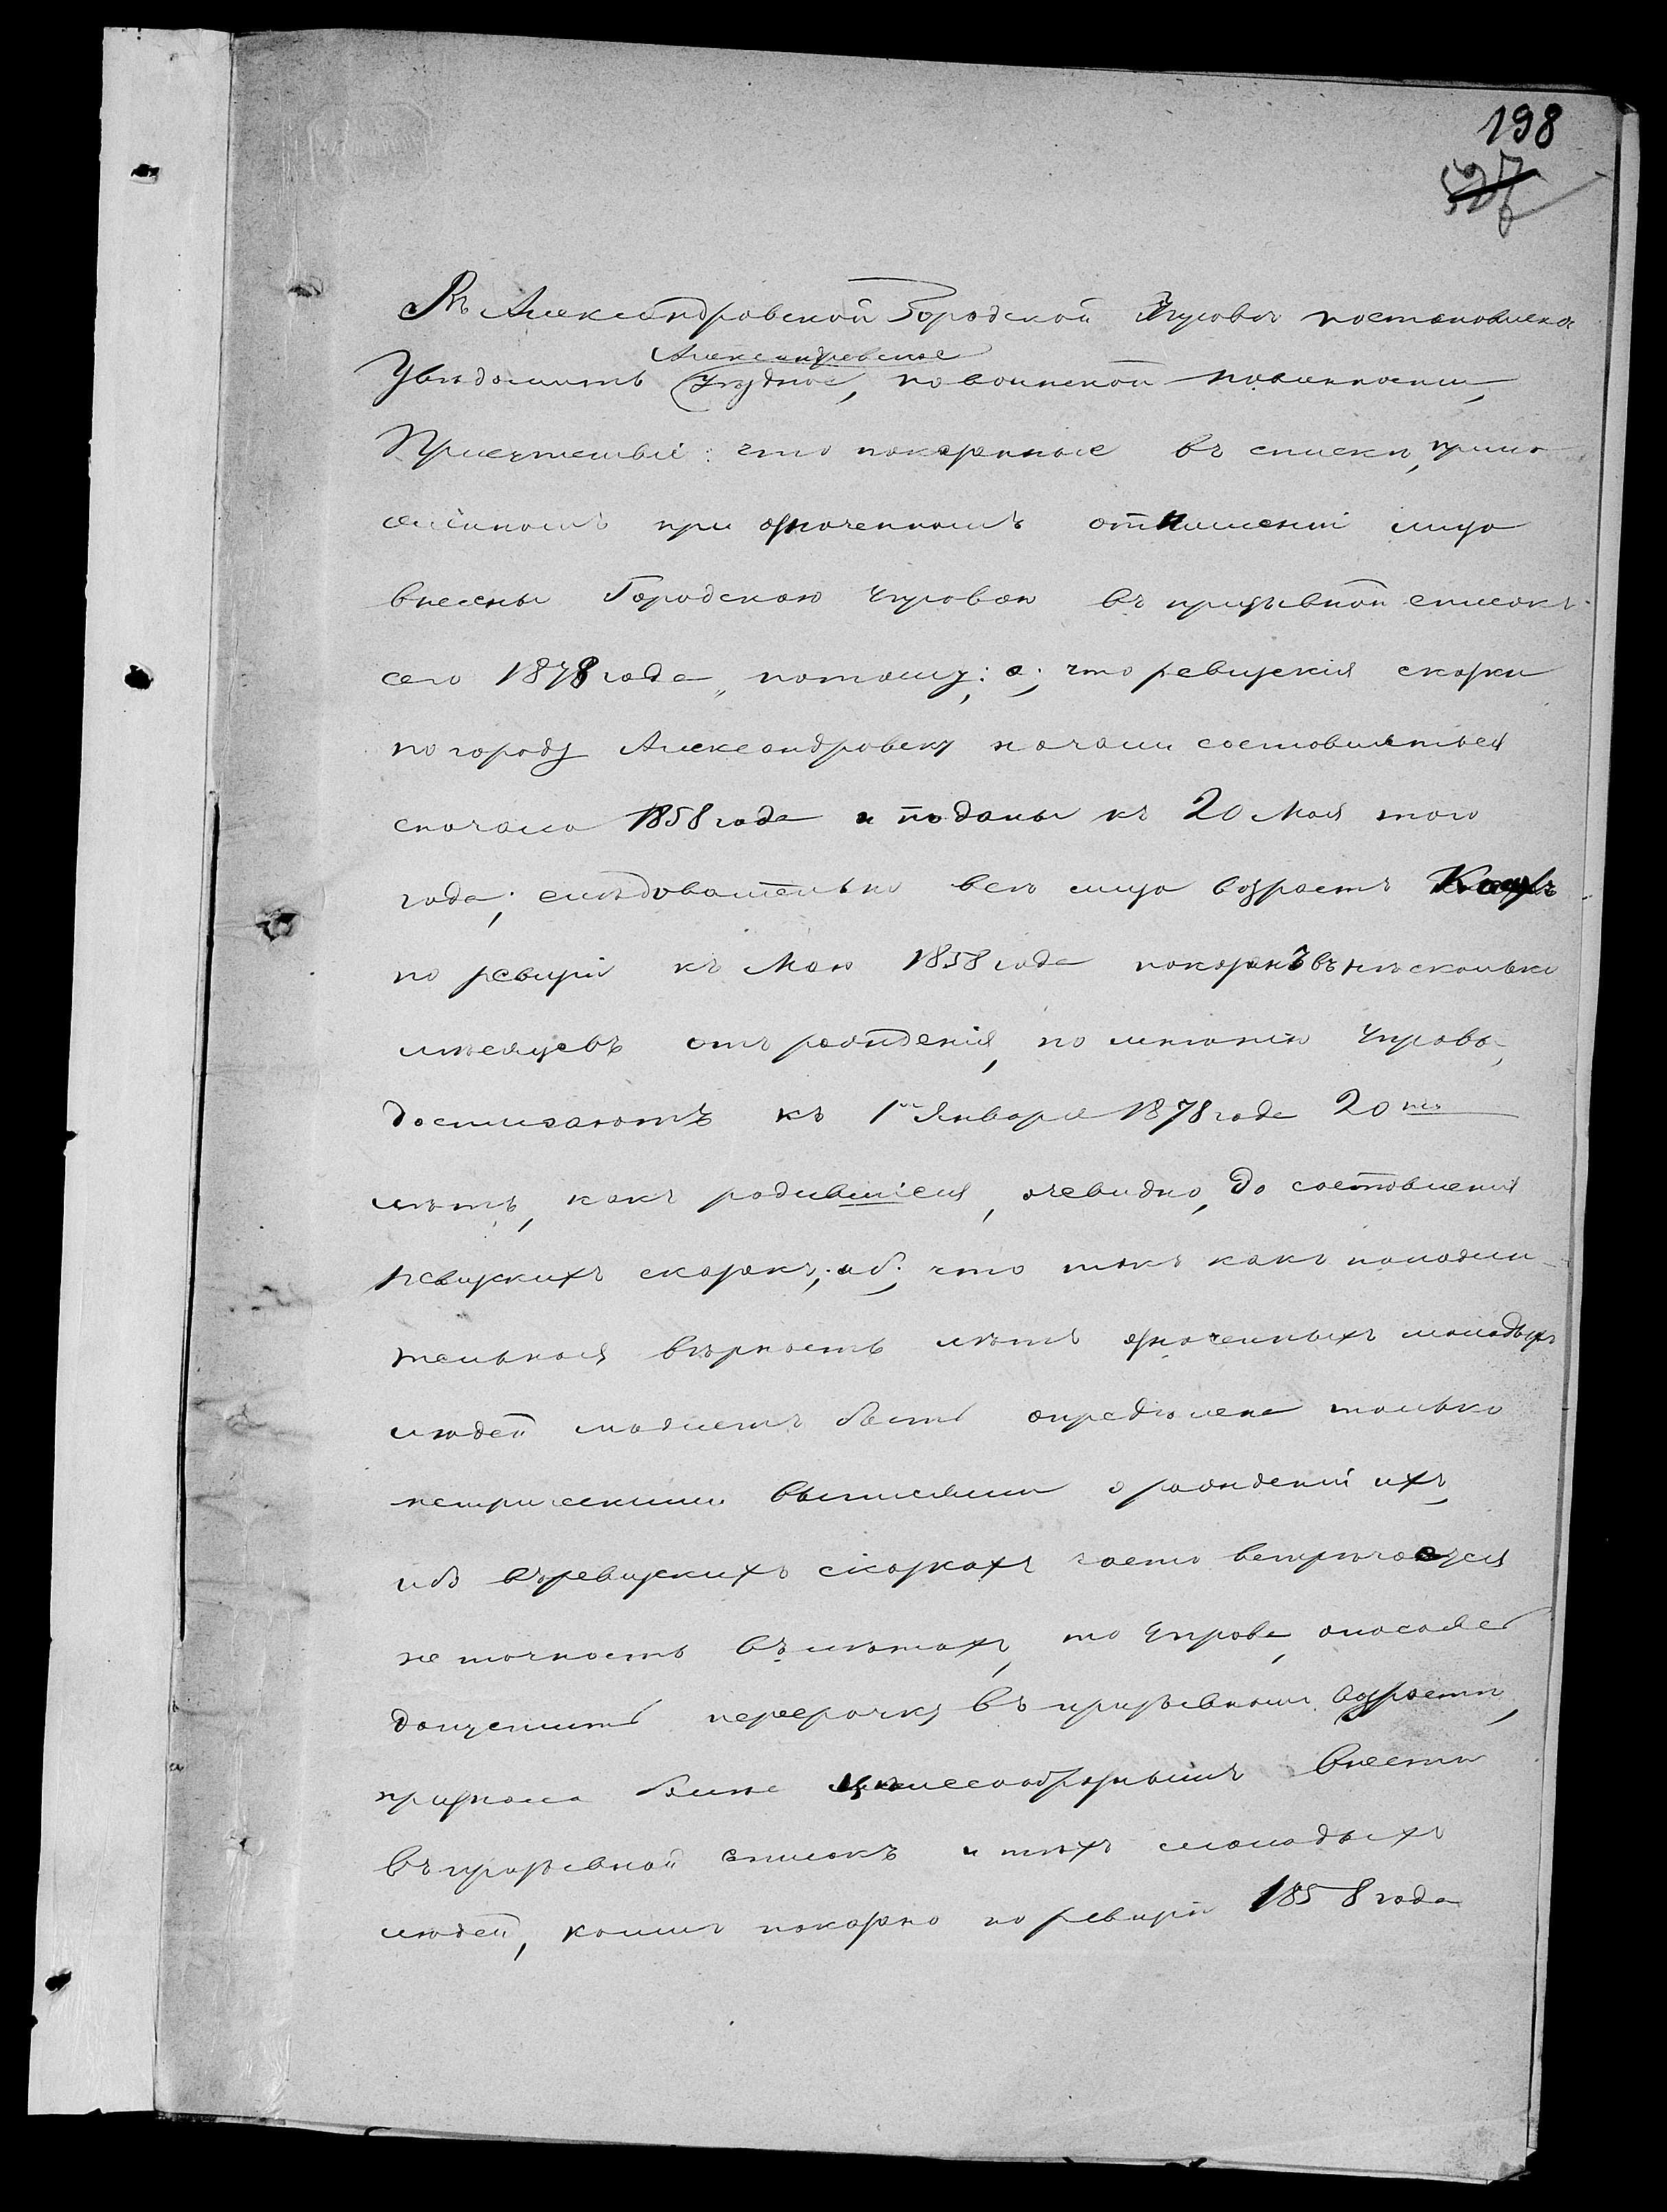 198
527
Въ Александровской Городской Управѣ постановлено
Александровское
Увѣдомить Уѣздное, по воинской повинности,
Присутствіе: что показанные въ списки, прило
женномъ при означенномъ отношеніи лица
внесены Городскою Управою въ призывной списокъ
сего 1878 года, потому: а; что ревизскія сказки
по городу Александровску начали составляться
сначала 1858 года и поданы къ 20 Мая того
года; слѣдовательно всѣ лица возрастъ
по ревизіи къ Маю 1858 года показанъ въ нѣсколько
мѣсяцевъ отъ рожденія, по мнѣнію Управы,
достигаютъ къ 1 Января 1878 года 20ти
лѣтъ, какъ родившіеся, очевидно, до составленія
ревизскихъ сказокъ; и б; что такъ какъ положи
тельная вѣрность лѣтъ означенныхъ молодыхъ
людей можетъ быть опредѣлена только
метрическими выписями о рожденіи ихъ,
ибо въ ревизскихъ сказкахъ часто встрѣчается
не точность въ лѣтахъ, то Управа, опасаясь
допустить пересрочку въ призывномъ возрастѣ,
признала болѣе цѣлесообразнымъ внести
въ призывной списокъ и тѣхъ молодыхъ
людей, коимъ показано по ревизіи 1858 года